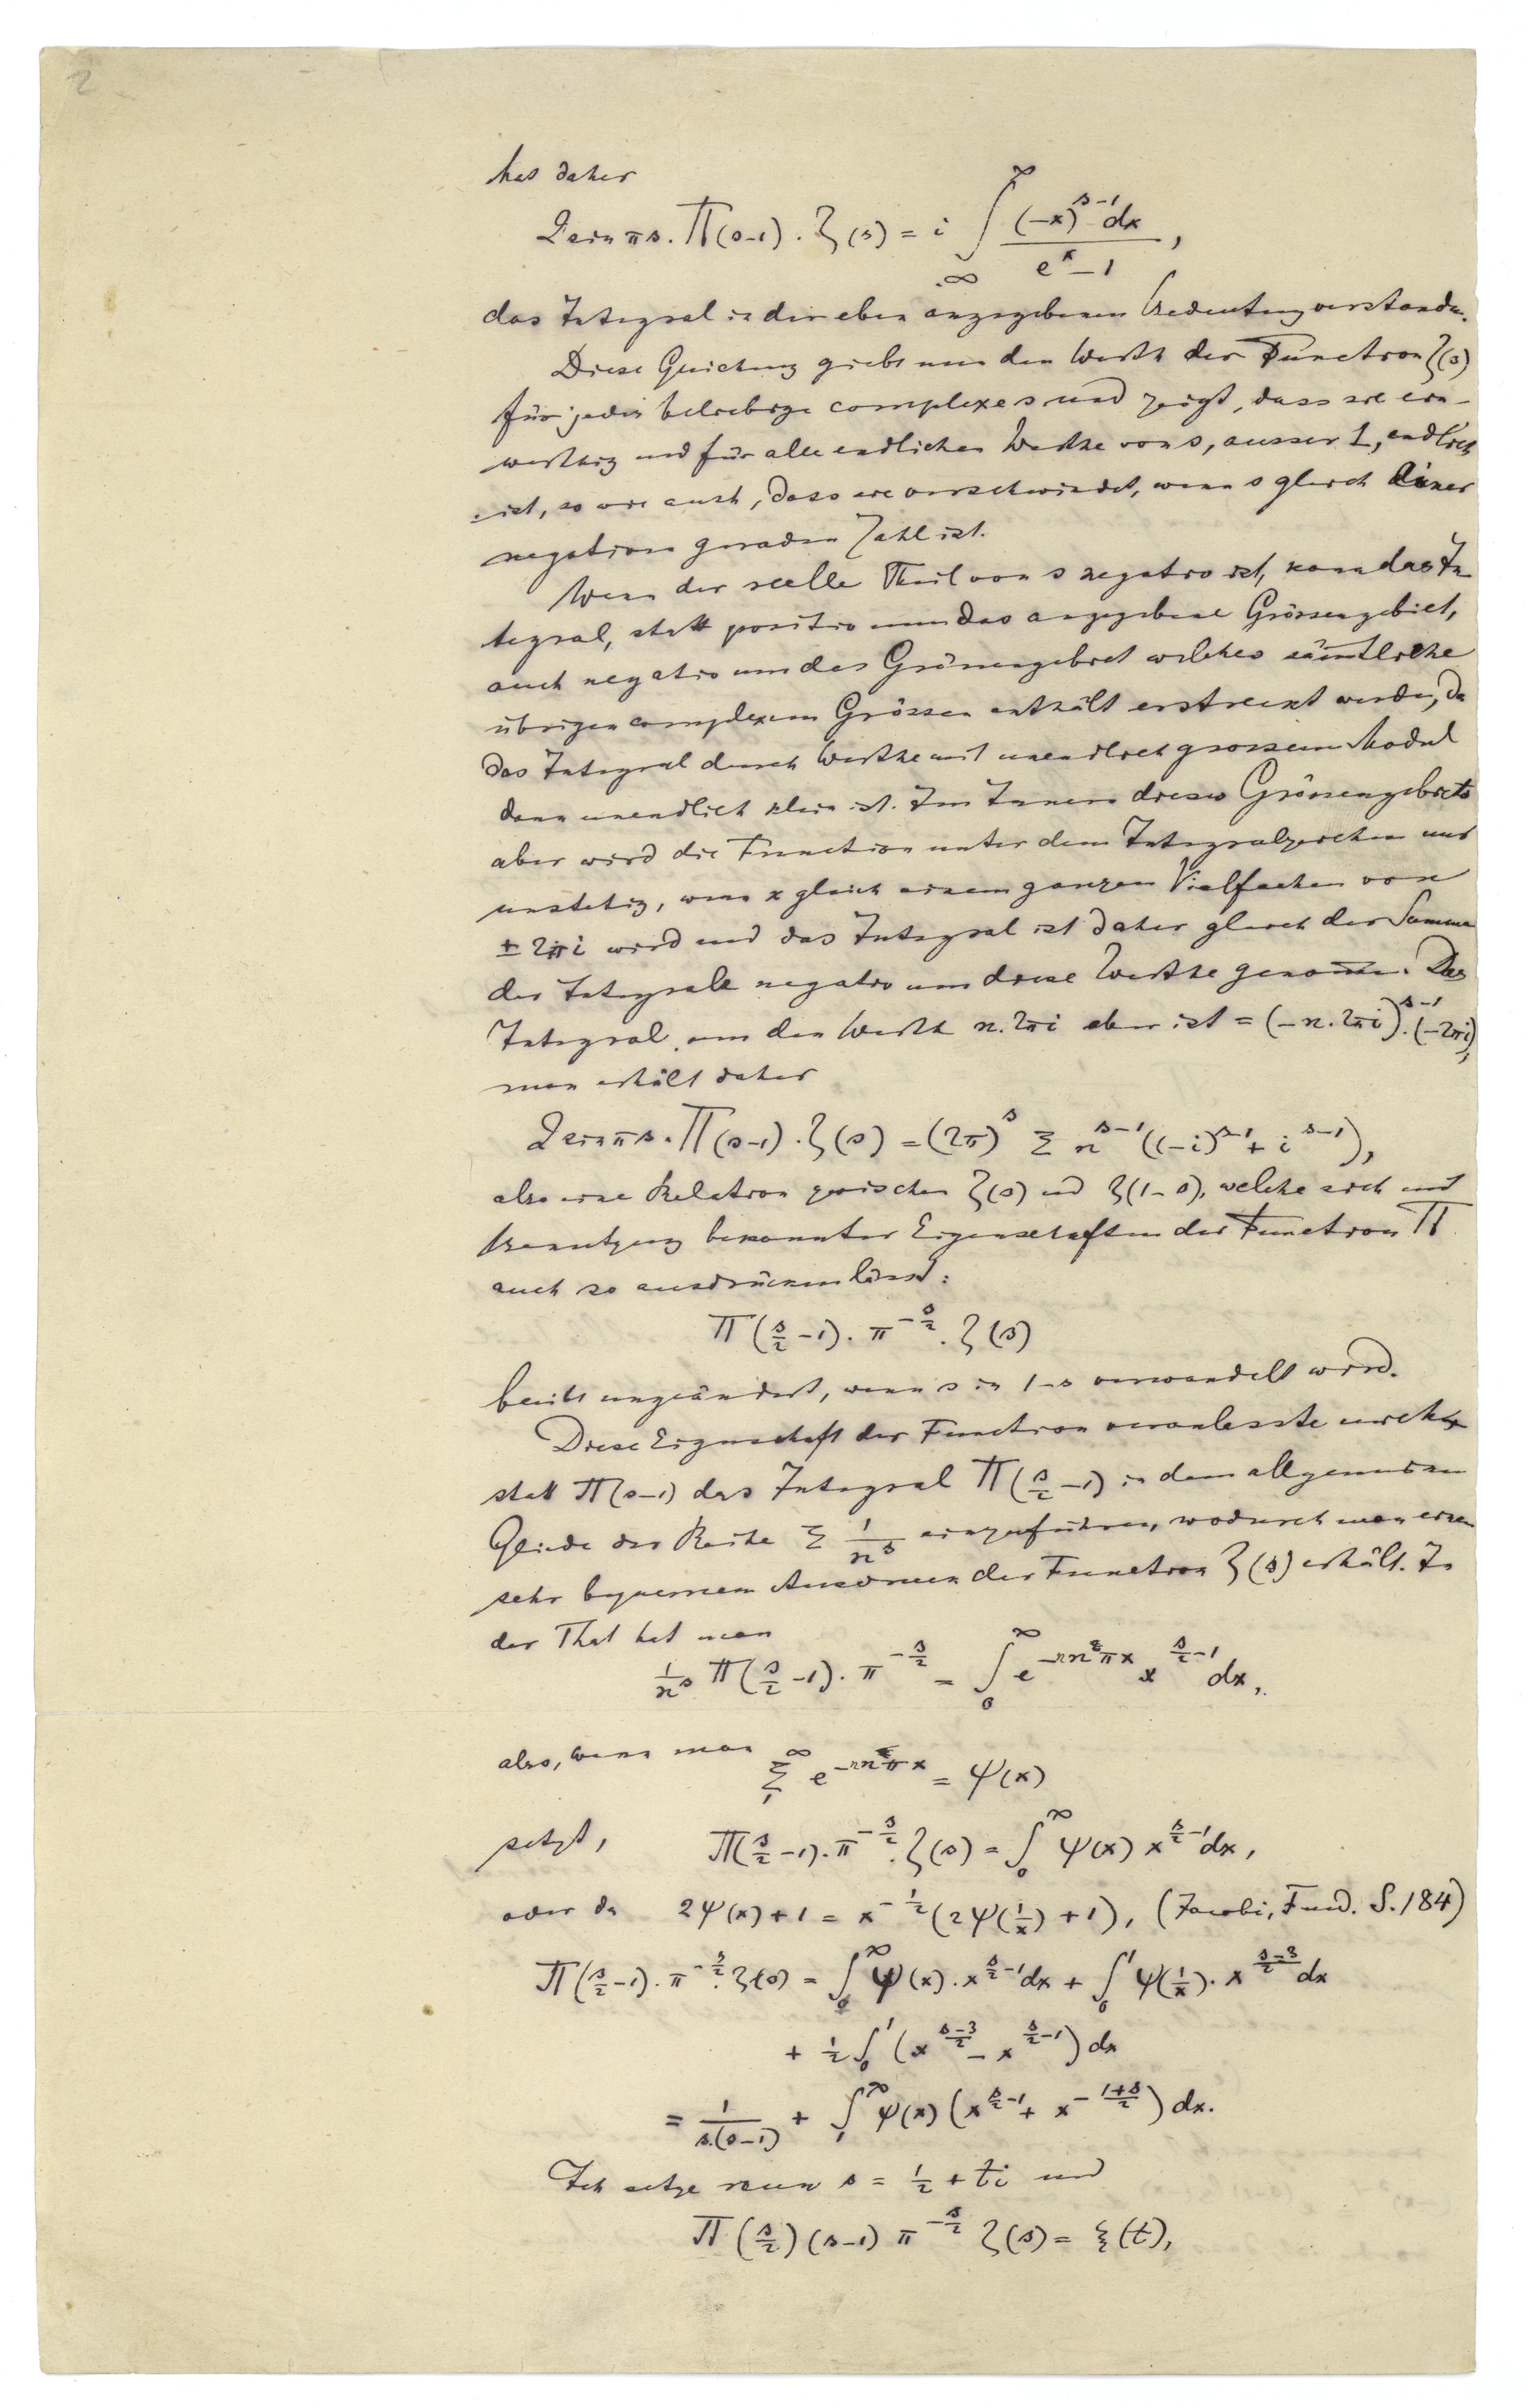 2
hat daher
2 sin πs . Π(s-1) . ζ(s) = i ∫_∞^∞ (-x)^{s-1} dx / (e^x - 1) ,
das Integral in der eben angegebenen Bedeutung verstanden.
Diese Gleichung giebt nun den Werth der Function ζ(s)
für jedes beliebige complexe s und zeigt, dass sie ein-
werthig und für alle endlichen Werthe von s, ausser 1, endlich
ist, so wie auch, dass sie verschwindet, wenn s gleich einer
negativen geraden Zahl ist.
Wenn der reelle Theil von s negativ ist, kann das In
tegral, statt positiv um das angegebene Grössengebiet,
auch negativ um das Grössengebiet welches sämtliche
übrigen complexen Grössen enthält erstreckt werden, da
das Integral durch Werthe mit unendlich grossem Modul
dann unendlich klein ist. Im Innern dieses Grössengebiets
aber wird die Function unter dem Integralzeichen nur
unstetig, wenn x gleich einem ganzen Vielfachen von
± 2πi wird und das Integral ist daher gleich der Summe
der Integrale negativ um diese Werthe genom̅en. Das
Integral um den Werth n.2πi aber ist = (-n.2πi)^{s-1}.(-2πi),
man erhält daher
2 sin πs . Π(s-1) . ζ(s) = (2π)^s Σ n^{s-1} ((-i)^{s-1} + i^{s-1}),
also eine Relation zwischen ζ(s) und ζ(1-s), welche sich mit
Benutzung bekannter Eigenschaften der Function Π
auch so ausdrücken lässt:
Π(s/2 - 1) . π^{-s/2} . ζ(s)
bleibt ungeändert, wenn s in 1-s verwandelt wird.
Diese Eigenschaft der Function veranlasste mich
statt Π(s-1) das Integral Π(s/2 - 1) in dem allgemeinen
Gliede der Reihe Σ 1/n^s einzuführen, wodurch man einen
sehr bequemen Ausdruck der Function ζ(s) erhält. In
der That hat man
1/n^s Π(s/2 - 1) . π^{-s/2} = ∫_0^∞ e^{-nnπx} x^{s/2 - 1} dx,
also, wenn man Σ_1^∞ e^{-nnπx} = ψ(x)
setzt, Π(s/2 - 1) . π^{-s/2} . ζ(s) = ∫_0^∞ ψ(x) x^{s/2 - 1} dx,
oder da 2ψ(x) + 1 = x^{-1/2} (2ψ(1/x) + 1), (Jacobi, Fund. S. 184)
Π(s/2 - 1) . π^{-s/2} . ζ(s) = ∫_1^∞ ψ(x) . x^{s/2 - 1} dx + ∫_0^1 ψ(1/x) . x^{(s-3)/2} dx
+ 1/2 ∫_0^1 (x^{(s-3)/2} - x^{s/2 - 1}) dx
= 1/(s.(s-1)) + ∫_1^∞ ψ(x) (x^{s/2 - 1} + x^{-(1+s)/2}) dx.
Ich setze nun s = 1/2 + ti und
Π(s/2) (s-1) π^{-s/2} ζ(s) = ξ(t),